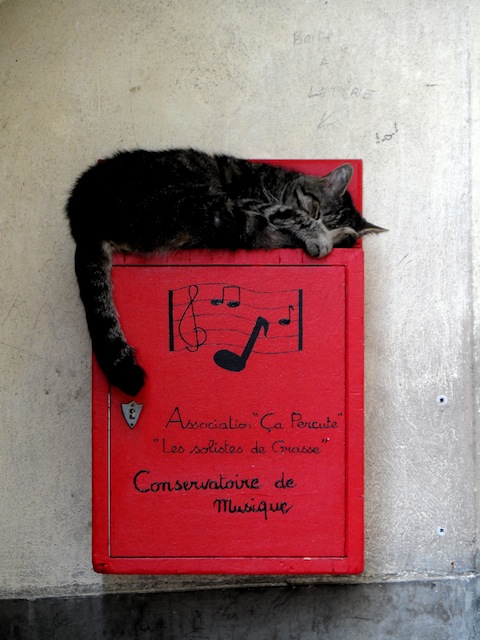 BOITE
A
LETTRE
Association "Ça Percute"
"Les solistes de Grasse"
Conservatoire de
Musique